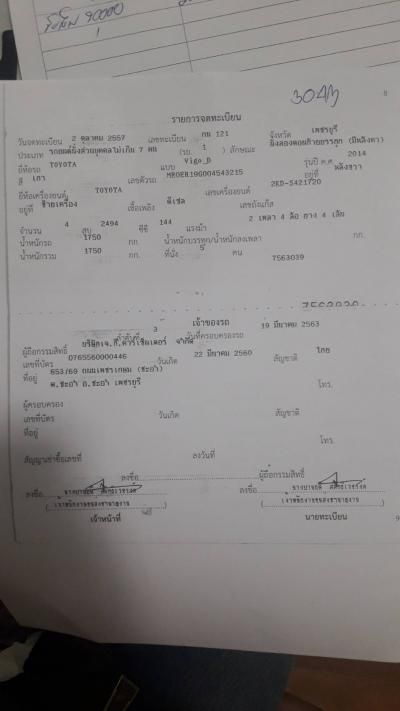 10000
304/3
8
รายการจดทะเบียน
วันจดทะเบียน 2 ตุลาคม 2557 เลขทะเบียน กย 121 จังหวัด เพชรบุรี
ประเภท รถยนต์นั่งส่วนบุคคลไม่เกิน 7 คน (รย. 1 ) ลักษณะ นั่งสองตอนท้ายบรรทุก (มีหลังคา)
ยี่ห้อรถ TOYOTA แบบ Vigo_D รุ่นปี ค.ศ. 2014
สี เทา เลขตัวรถ MROER19G004543215 อยู่ที่ หลังขวา
ยี่ห้อเครื่องยนต์ TOYOTA เลขเครื่องยนต์ 2KD-S421720
อยู่ที่ ซ้ายเครื่อง เชื้อเพลิง ดีเซล เลขถังแก๊ส
จำนวน 4 สูบ 2494 ซีซี 144 แรงม้า 2 เพลา 4 ล้อ ยาง 4 เส้น
น้ำหนักรถ 1750 กก. น้ำหนักบรรทุก/น้ำหนักลงเพลา กก.
น้ำหนักรวม 1750 กก. ที่นั่ง 5 คน 7563039
เจ้าของรถ
ลำดับที่ 3 วันที่ครอบครองรถ 19 มีนาคม 2563
ผู้ถือกรรมสิทธิ์ บริษัท
เลขที่บัตร 0765560000446 วันเกิด 22 มีนาคม 2560 สัญชาติ ไทย
ที่อยู่ 653/69 ถนนเพชรเกษม (ชะอำ)
ต.ชะอำ อ.ชะอำ เพชรบุรี โทร.
ผู้ครอบครอง
เลขที่บัตร วันเกิด สัญชาติ
ที่อยู่
โทร.
สัญญาเช่าซื้อเลขที่ ลงวันที่
ลงชื่อ ผู้ถือกรรมสิทธิ์
ลงชื่อ ลงชื่อ
เจ้าหน้าที่ นายทะเบียน
9